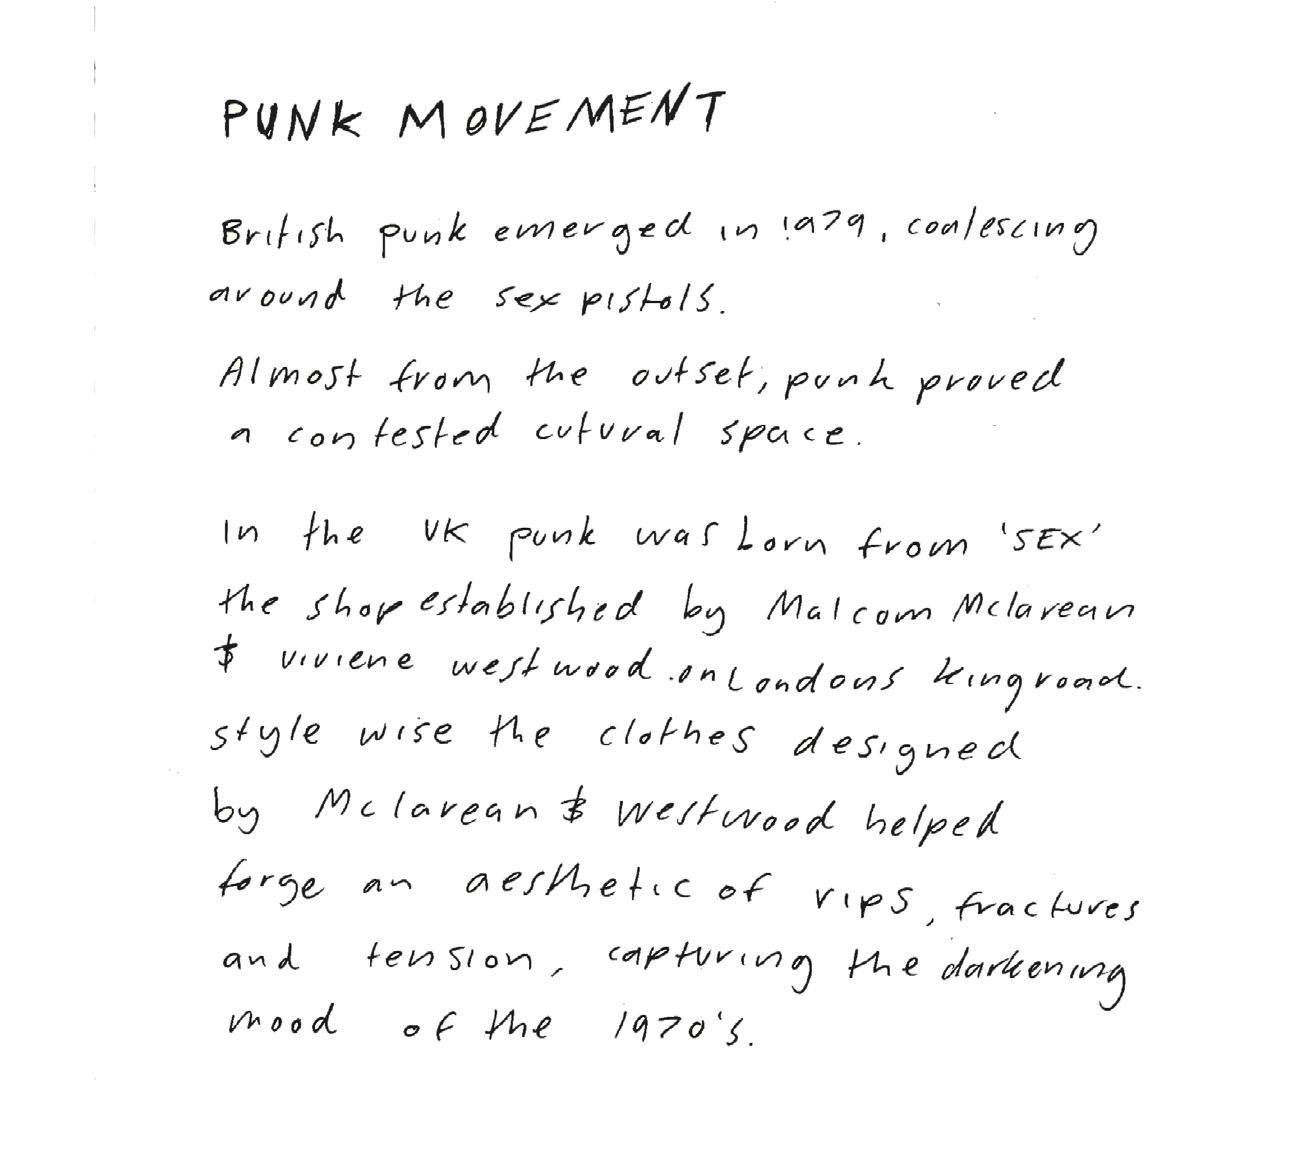 PUNK MOVEMENT
British punk emerged in 1979, coalescing
around the sex pistols.
Almost from the outset, punk proved
a contested cutural space.
In the UK punk was born from 'SEX'
the shop established by Malcom Mclarean
& viviene westwood. on Londons king road.
style wise the clothes designed
by Mclarean & westwood helped
forge an aesthetic of rips, fractures
and tension, capturing the darkening
mood of the 1970's.